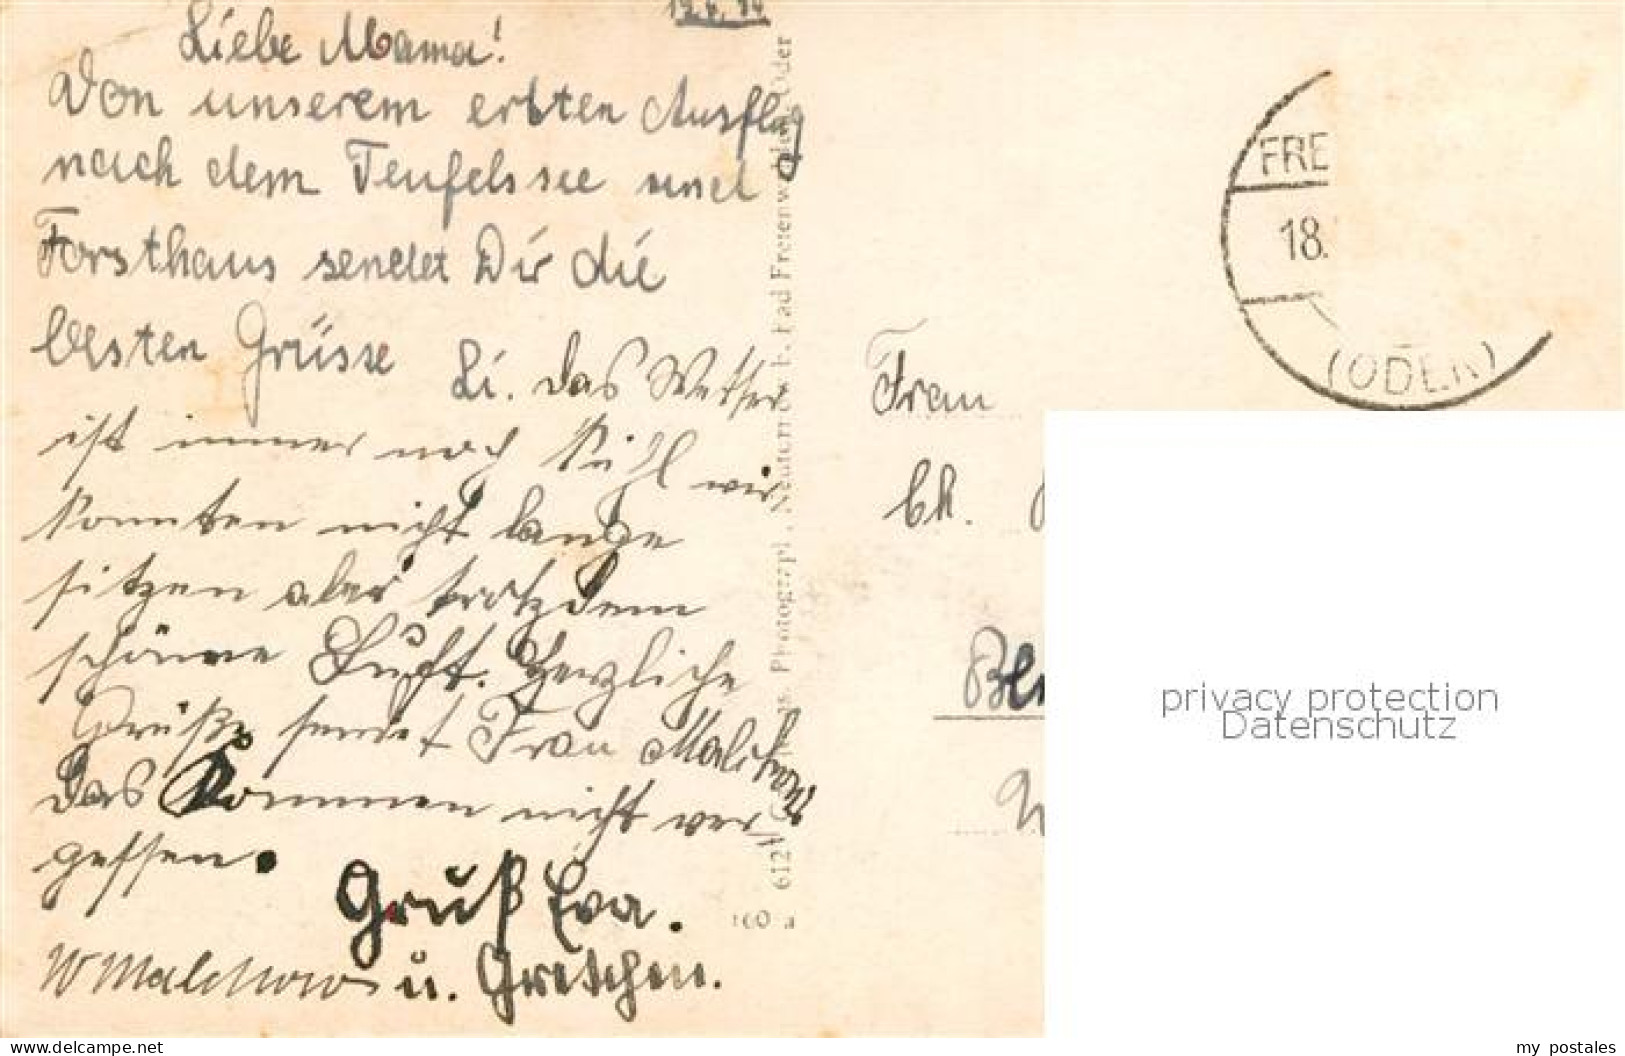 Liebe Mama!
Von unserem ersten Ausflug
nach dem Teufelssee und
Forsthaus sendet Dir die
besten Grüsse
Li. das Wetter
ist immer noch kühl wir
konnten nicht lange
sitzen aber trotzdem
schöne Luft. Herzliche
Grüße sendet Frau Malchow
Das Kommen nicht ver
gessen.
Gruß Eva.
W Malchow u. Gretchen.
160 a
Photograph
Bad Freienwalde Oder
612
FRE
18.
(ODER)
Frau
bh.
privacy protection
Datenschutz
www.delcampe.net
my_postales